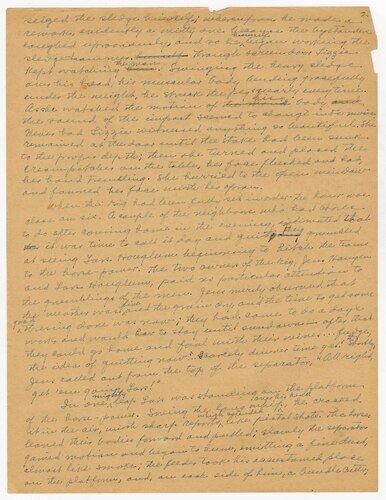 2.
seized the sledge himself, whereupon he made a
remark, evidently a witty one because the bystanders
laughed uproariously and so he began
sledge hammer, through screen door Lizzie
kept watching the man. Swinging the heavy sledge
over his head, his muscular body bending gracefully
under the weight, he struck the peg exactly every time.
As she watched the motions of his body
the sound of the impact seemed to change into music
Never had Lizzie witnessed anything so beautiful. She
remained at the door until the stake had been sunk
to the proper depth; then she turned and placed the
creamed potatoes on the table, her face flushed and hot,
her hand trembling. She hurried to the open window
and fanned her face with her apron.
When the rig had been finally set in order the hour was
close on six. A couple of the neighbors who had chores
to do after coming home in the evening, intimated that
it was time to call it a day and quit. They grumbled
at seeing Lars Houglum beginning to hitch the team
to the horse-power. The two owners of the rig, Jens Haugen
and Lars Houglum, paid no particular attention to
the grumblings of the men. Jens merely observed that
the weather was fine and the grain dry, and the time to get some
threshing done was now; they had come to do a day's
work and would have to stay until sundown; after that
they could go home and fiddle with their wives ...
the idea of quitting now! Scarcely dinner time yet!
Jens called out from the top of the separator, "All right,
get 'em going Lars!"
In one mighty leap Lars was standing on the platform
of the horse-power. Swinging the long whip over his head he cracked
it in the air, with sharp reports, like pistol shots. The horses
leaned their bodies forward and pulled; slowly the separator
gained motion and began to hum, emitting a fine dust,
almost like smoke; the feeder took his accustomed place
on the platform, and, on each side of him, a bundle cutter,